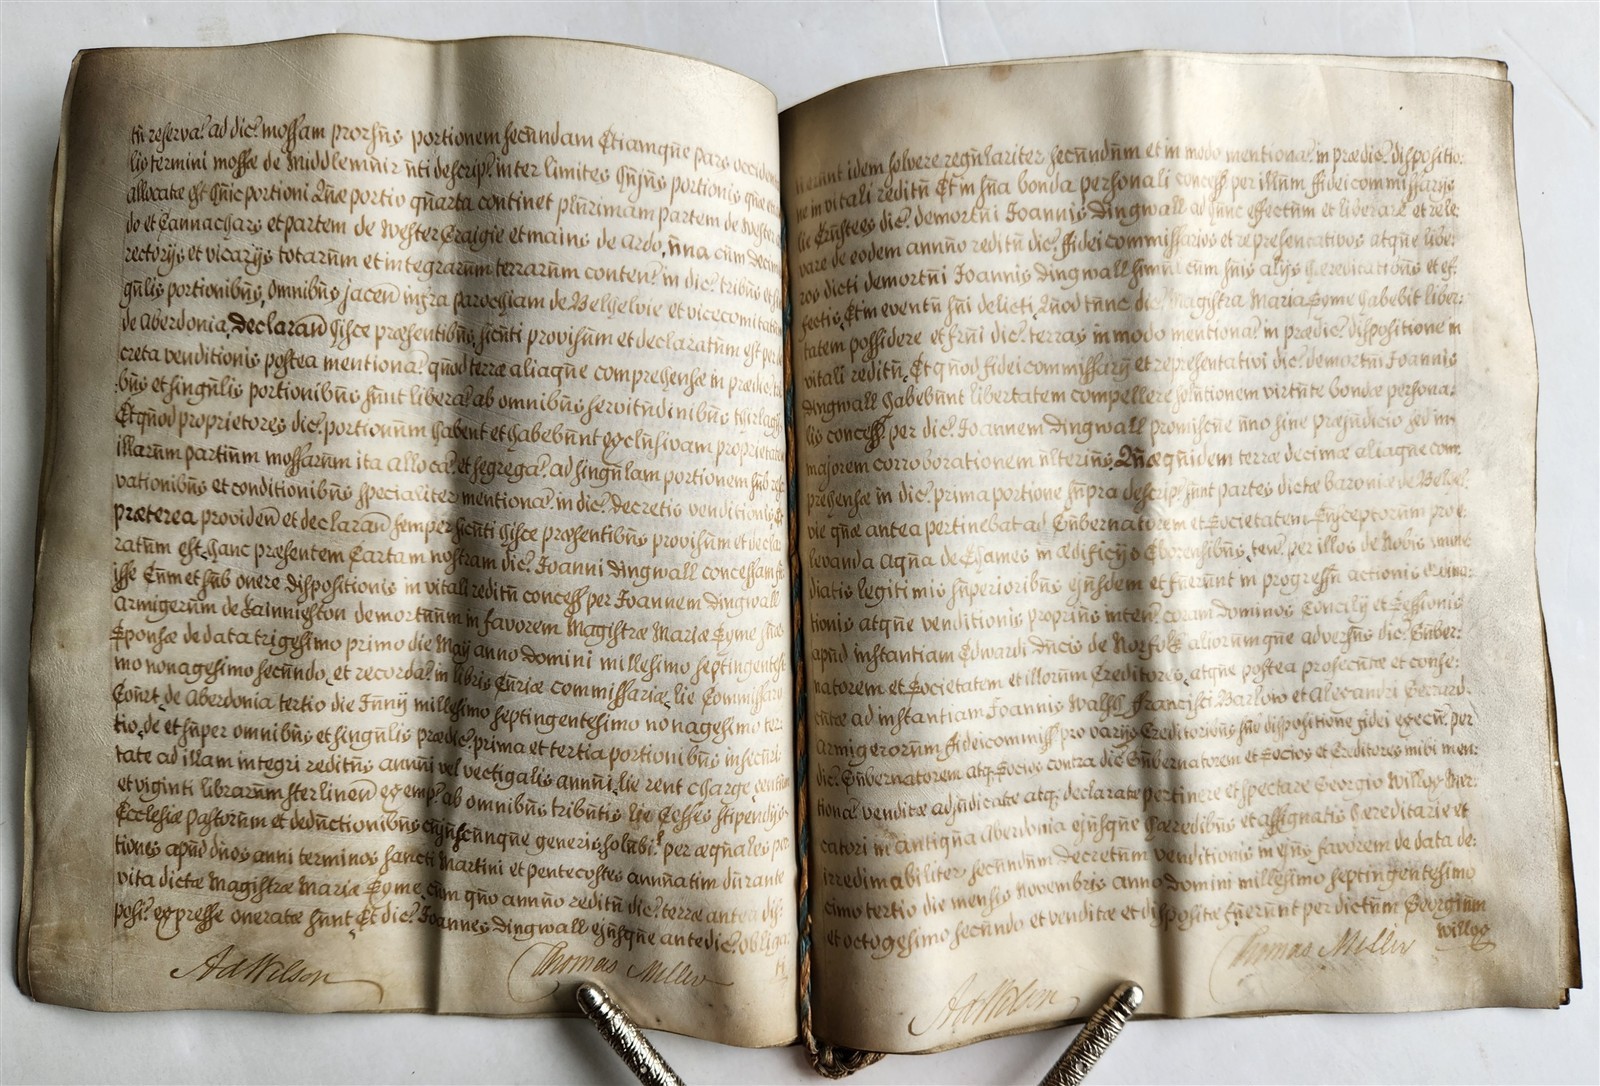 tn reserva? ad dic? mossam prorsus portionem secundam Etiamque pars occiden
lis termini mossæ de Middlemuir uti descrip? inter limites cujus portionis quæ
allocatæ est huic portioni Quæ portio quarta continet plurimam partem de Wester
do et Cannachars et partem de Wester Craigie et mains de Ardo, una cum decim
rectorijs et vicarijs totarum et integrarum terrarum conten? in dic? tribus et sin
gulis portionibus, omnibus jacen infra parochiam de Belhelvie et vicecomitatum
de Aberdonia, Declaran hisce præsentibus, sicuti provisum et declaratum est per de
creta venditionis postea mentiona? quod terræ aliaque comprehensæ in prædic?
bus et singulis portionibus sunt libera? ab omnibus servitudinibus thirlagij
Et quod proprietores dic? portionum habent et habebunt exclusivam proprietatem
illarum partium mossarum ita alloca? et segrega? ad singulam portionem sub reser
vationibus et conditionibus specialiter mentiona? in dic? decretis venditionis Et
præterea providen et declaran semper sicuti hisce præsentibus provisum et decla
ratum est, hanc præsentem Cartam nostram dic? Joanni Dingwall concessam
isse Cum et sub onere dispositionis in vitali reditu concess? per Joannem Dingwall
armigerum de Rainnieston demortuum in favorem Magistræ Mariæ Lyme suæ
Sponsæ de data trigesimo primo die Maij anno Domini millesimo septingentesi
mo nonagesimo secundo, et recorda? in libris Curiæ commissariæ, lie Commissary
Court, de Aberdonia tertio die Junij millesimo septingentesimo nonagesimo ter
tio, de et super omnibus et singulis prædic? prima et tertia portionibus in securi
tate ad illam integri reditus annui vel vectigalis annui, lie rent charge, centum
et viginti librarum sterlinen exemp? ab omnibus tributis lie Cesses stipendijs
Ecclesiæ Pastorum et deductionibus cujuscunque generis solubi? per æquales por
tiones apud duos anni terminos sancti Martini et pentecostes annuatim durante
vita dictæ Magistræ Mariæ Lyme, cum quo annuo reditu dic? terræ antea dis
posi? expresse oneratæ sunt, Et dic? Joannes Dingwall ejusque antedic? obliga:
Ad Wilson Thomas Miller
idem solvere regulariter secundum et in modo mentiona? in prædic? dispositio:
ne in vitali reditu Et in sua bonda personali concess? per illum fideicommissarijs
lie Trustees dic? demortui Joannis Dingwall ad hunc effectum et liberare et rele:
vare de eodem annuo reditu dic? fideicommissarios et representativos atque libe:
ros dicti demortui Joannis Dingwall simul cum suis alijs hæreditatibus et ef:
fectis, Et in eventu sui delicti Quod tunc dic? Magistra Maria Lyme habebit liber:
tatem possidere et frui dic? terras in modo mentiona? in prædic? dispositione in
vitali reditu, Et quod fideicommissarij et representativi dic? demortui Joannis
Dingwall habebunt libertatem compellere solutionem virtute bondæ persona:
lis concess? per dic? Joannem Dingwall promiscue uno sine præjudicio sed in
majorem corroborationem ulterius, Quæquidem terræ decimæ aliaque com:
prehensæ in dic? prima portione supra descrip? sunt partes dictæ baroniæ de Belhel
vie quæ antea pertinebat ad Gubernatorem et Societatem Susceptorum pro e
levanda aqua de Thames in ædificijs Eborensibus, ten? per illos de Nobis imme
diatis legitimis superioribus ejusdem et fuerunt in progressu actionis
tionis atque venditionis proprius inten? coram Dominos Concilij et Sessionis
apud instantiam Edwardi Ducis de Norfolk aliorumque adversus dic? Guber:
natorem et Societatem et illorum Creditores, atque postea prosecutæ et conse:
cutæ ad instantiam Joannis Walsh, Francisci Barlow et Alexandri Gerrard
armigerorum fideicommiss? pro varijs Creditoribus sub dispositione fidei execu? per
dic? Gubernatorem atq. Socios contra dic? Gubernatorem et Socios et Creditores mibi men:
tionat? venditæ adjudicatæ atq. declaratæ pertinere et spectare Georgio Willox Mer:
catori in antiqua Aberdonia ejusque hæredibus et assignatis hæreditarie et
irredimabiliter secundum decretum venditionis in ejus favorem de data de:
cimo tertio die mensis Novembris anno Domini millesimo septingentesimo
et octogesimo secundo et venditæ et dispositæ fuerunt per dictum Georgium
Willox
Ad Wilson Thomas Miller